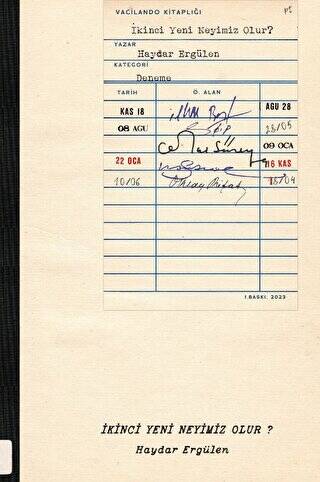 VACILANDO KİTAPLIĞI
İkinci Yeni Neyimiz Olur?
YAZAR
Haydar Ergülen
KATEGORİ
Deneme
TARİH Ö. ALAN
KAS 18 İlhan Berk AGU 28
08 AGU 28/05
Cemal Süreya 09 OCA
22 OCA 16 KAS
10/06 Oktay Rifat 18/04
1.BASKI, 2023
İKİNCİ YENİ NEYİMİZ OLUR ?
Haydar Ergülen